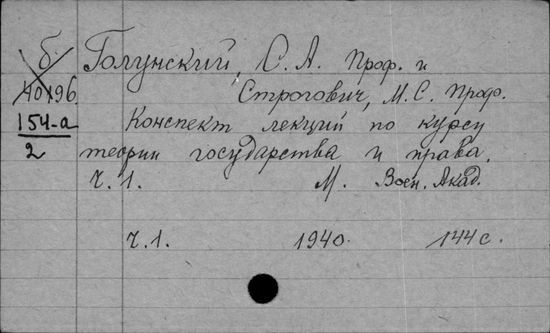 б
Голунский, С. А. Проф. и
40196
Строгович, М. С. Проф.
154-а
2
Конспект лекций по курсу
теории государства и права.
Ч. 1. М. Воен. Акад.
Ч. 1. 1940. 144 с.